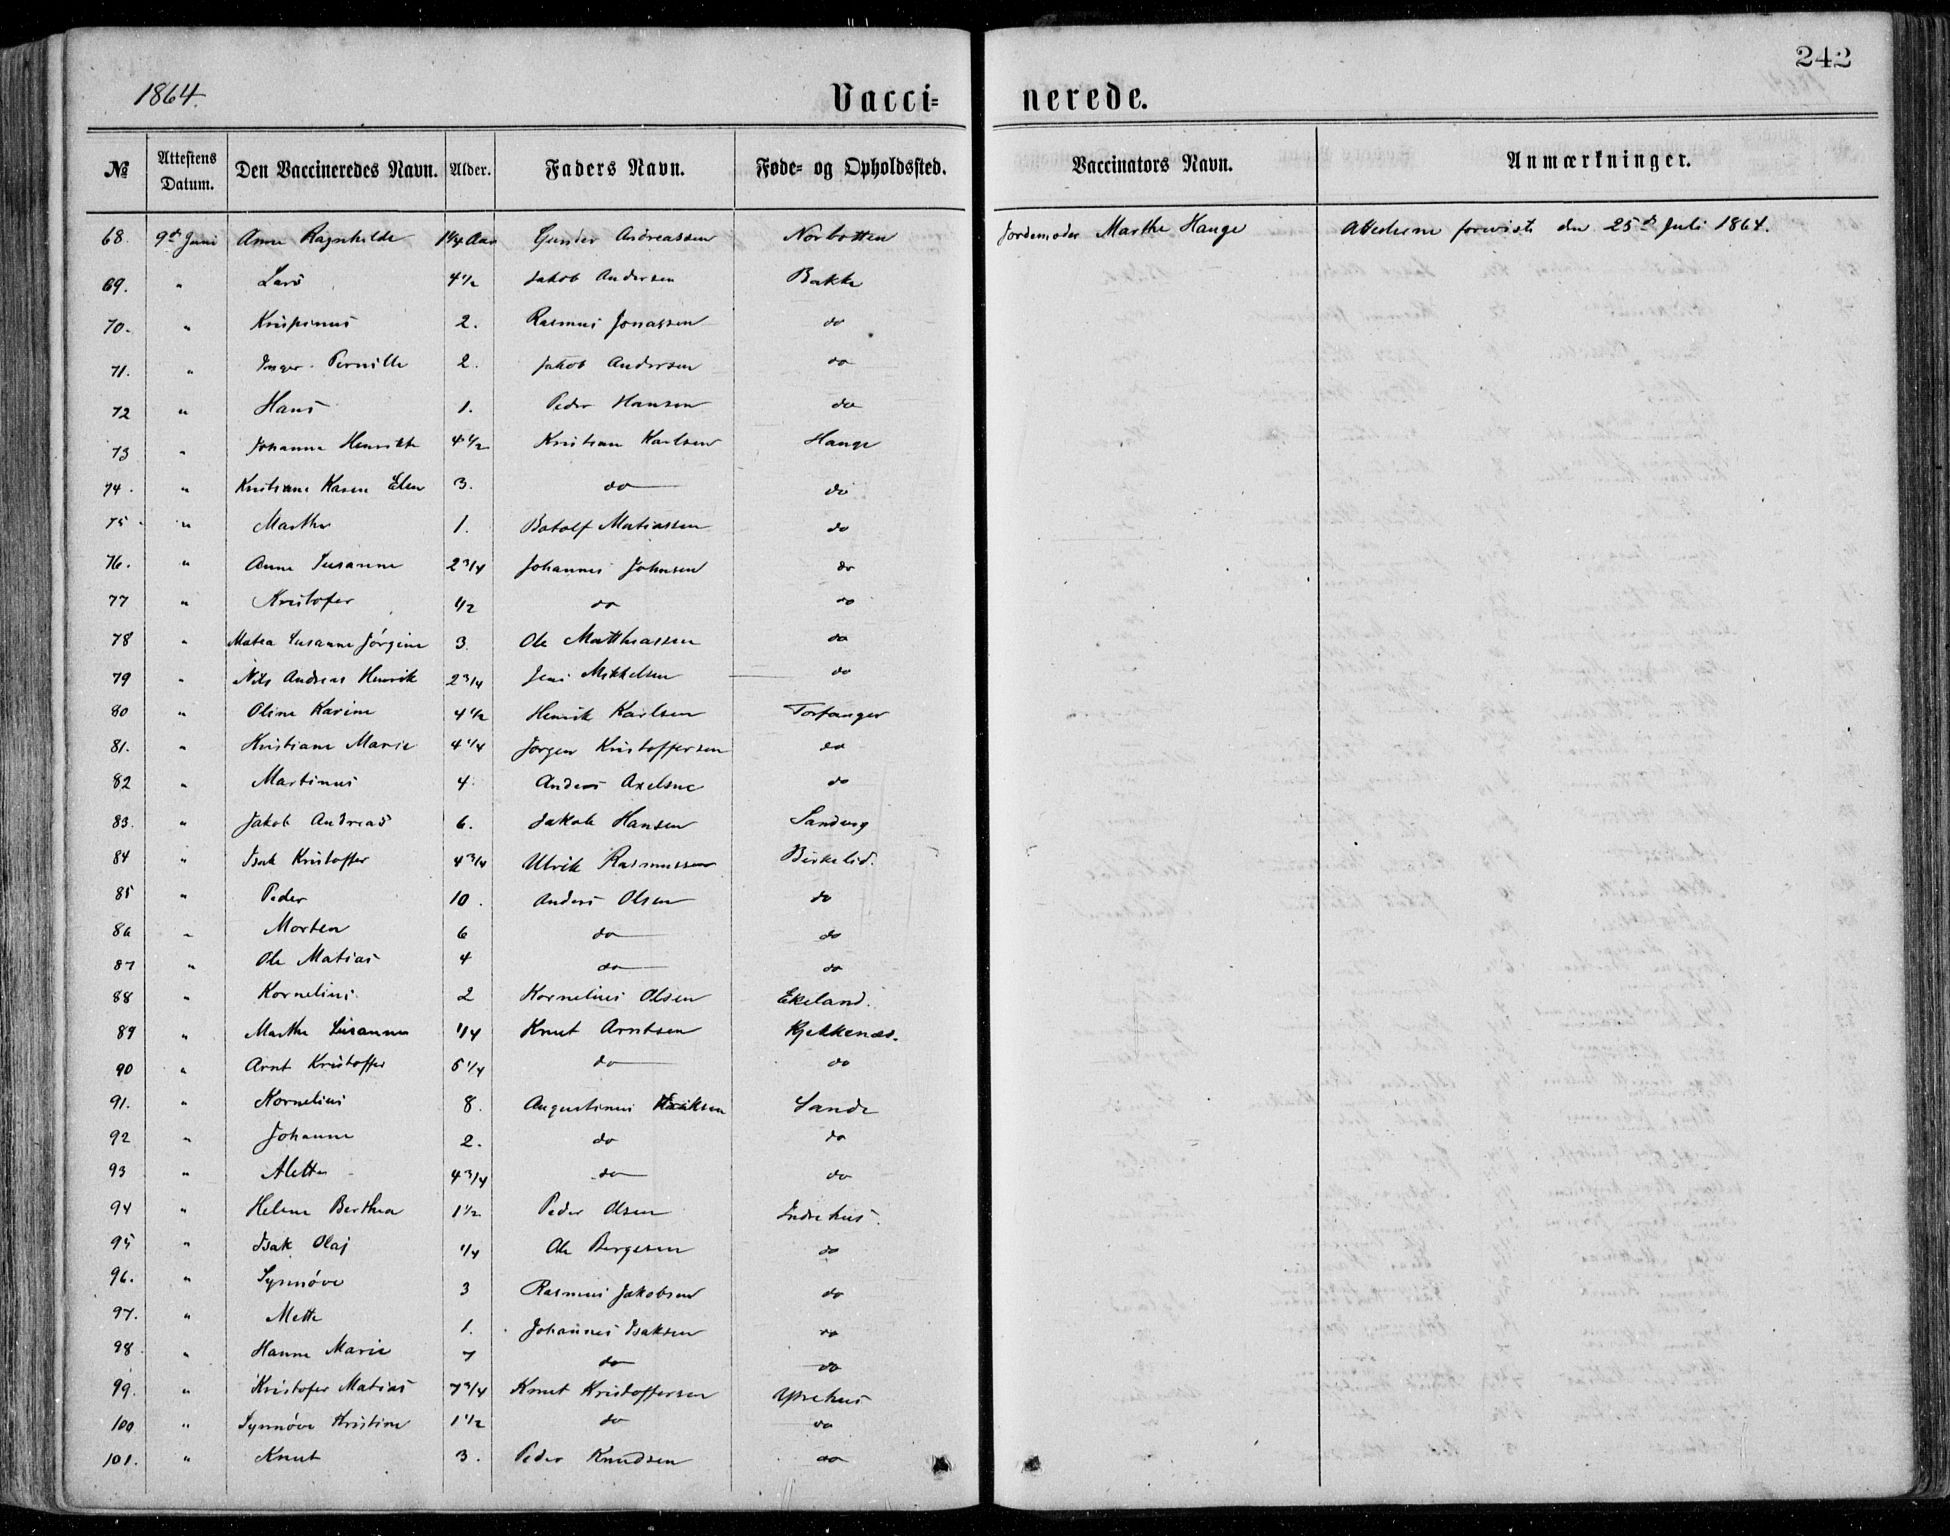 242
1864.
Vacci= nerede.
№ Attestens Datum. Den Vaccineredes Navn. Alder. Faders Navn. Føde- og Opholdssted. Vaccinators Navn. Anmærkninger.
68. 9de Juni Anne Ragnhilde 1 1/4 Aar Gunder Andreassen Norbotten Jordemoder Marthe Hauge Attesterne forevist den 25de Juli 1864.
69. " Lars 4 1/2 Jakob Andersen Bakke
70. " Krispinus 2. Rasmus Jonassen do
71. " Inger Pernille 2. Jakob Andersen do
72 " Hans 1. Peder Hansen do
73 " Johanne Henrikke 4 1/2 Kristian Karlsen Hauge
74. " Kristiane Karen Elen 3. do do
75. " Marthe 1. Botolf Matiassen do
76. " Anne Susanne 2 3/4 Johannes Johnsen do
77 " Kristofer 1/2 do do
78 " Matea Susanne Jørgine 3. Ole Matthiassen do
79 " Nils Andreas Henrik 2 3/4 Jens Mikkelsen do
80 " Oline Karine 4 1/2 Henrik Karlsen Torfanger
81. " Kristiane Marie 4 1/4 Jørgen Kristoffersen do
82 " Martinus 4. Anders Axelsen do
83. " Jakob Andreas 6. Jakob Hansen Sandvig
84 " Isak Kristoffer 4 3/4 Ulrik Rasmussen Birkelid.
85 " Peder 10. Anders Olsen do
86 " Morten 6 do do
87 " Ole Matias 4 do do
88 " Kornelius 2 Kornelius Olsen Ekeland.
89 " Marthe Susanne 1/4 Knut Arntsen Kjekkenæs.
90 " Arnt Kristoffer 5 1/4 do do
91. " Kornelius 8. Augustinus Sande
92 " Johanne 2. do do
93 " Alette 4 3/4 do do
94 " Helene Berthea 1 1/2 Peder Olsen Indrehus.
95 " Isak Olaj 1/4 Ole Børgesen do
96. " Synnøve 3 Rasmus Jakobsen do
97. " Mette 1. Johannes Isaksen do
98. " Hanne Marie 7 do do
99. " Kristofer Matias 7 3/4 Knut Kristoffersen Ytrehus
100 " Synnøve Kristine 1 1/2 do do
101. " Knut 3. Peder Knudsen do